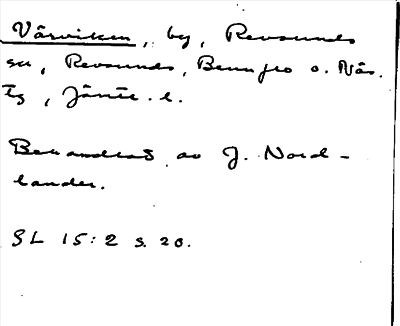 Vårviken, by, Revsunds
sn, Revsunds, Brunflo o. Näs.
tg, Jämtl. l.
Behandlad av J. Nord-
lander.
SL 15:2 s. 20.